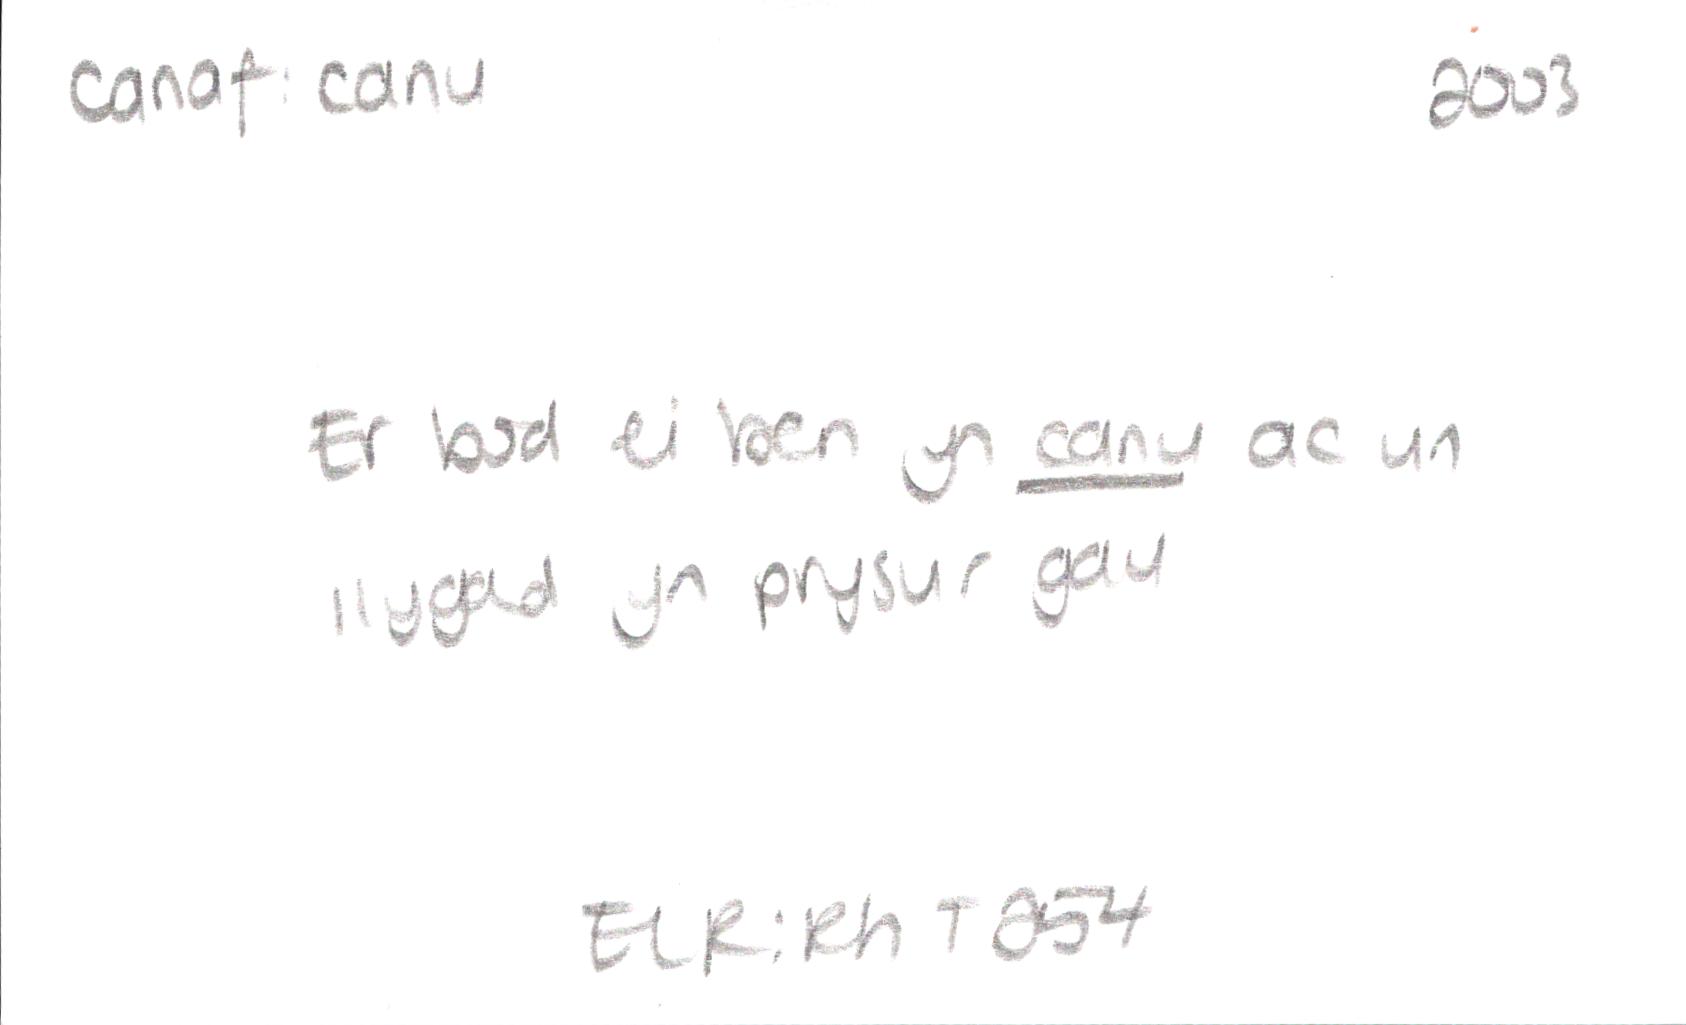 canaf: canu 2003
Er bod ei ben yn canu ac un
llygad yn prysur gau
ELR: Rh T 254